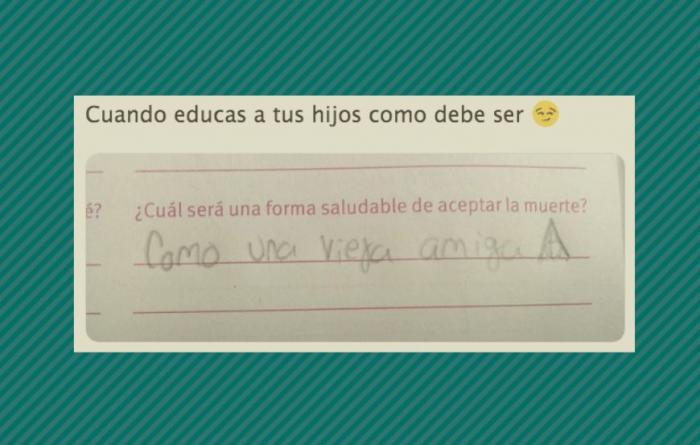 Cuando educas a tus hijos como debe ser 😏
é? ¿Cuál será una forma saludable de aceptar la muerte?
Como una vieja amiga